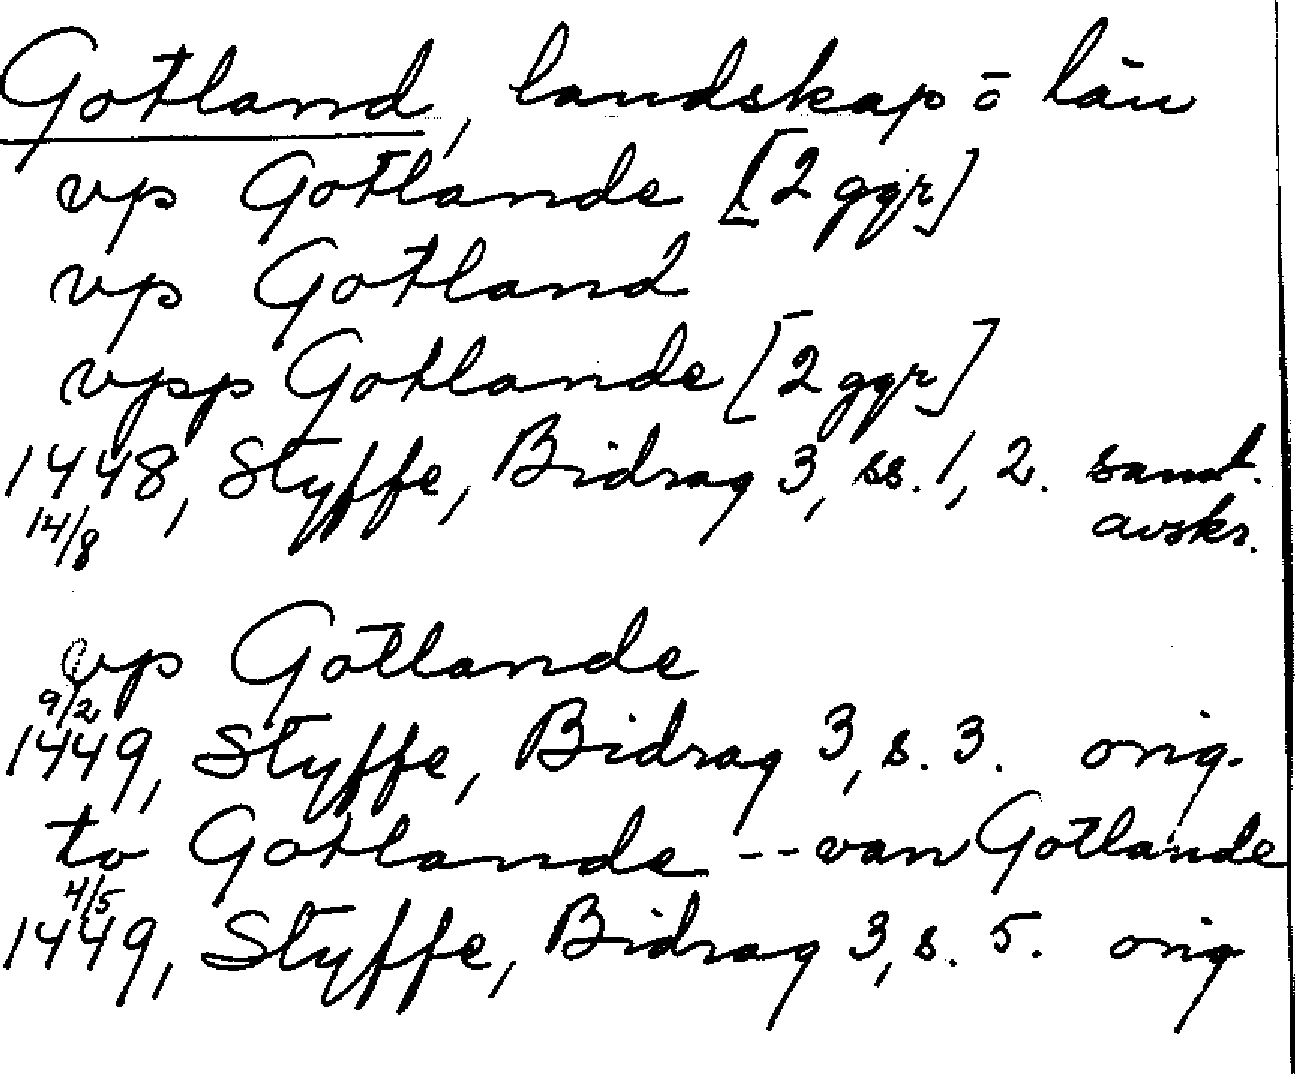 Gotland, landskap o län
vp Gotlande [2 ggr]
vp Gotland
vpp Gotlande [2 ggr]
1448, Styffe, Bidrag 3, ss. 1, 2. samt.
14/8 avskr.
vp Gotlande
9/2
1449, Styffe, Bidrag 3, s. 3. orig.
to Gotlande -- van Gotlande
4/5
1449, Styffe, Bidrag 3, s. 5. orig